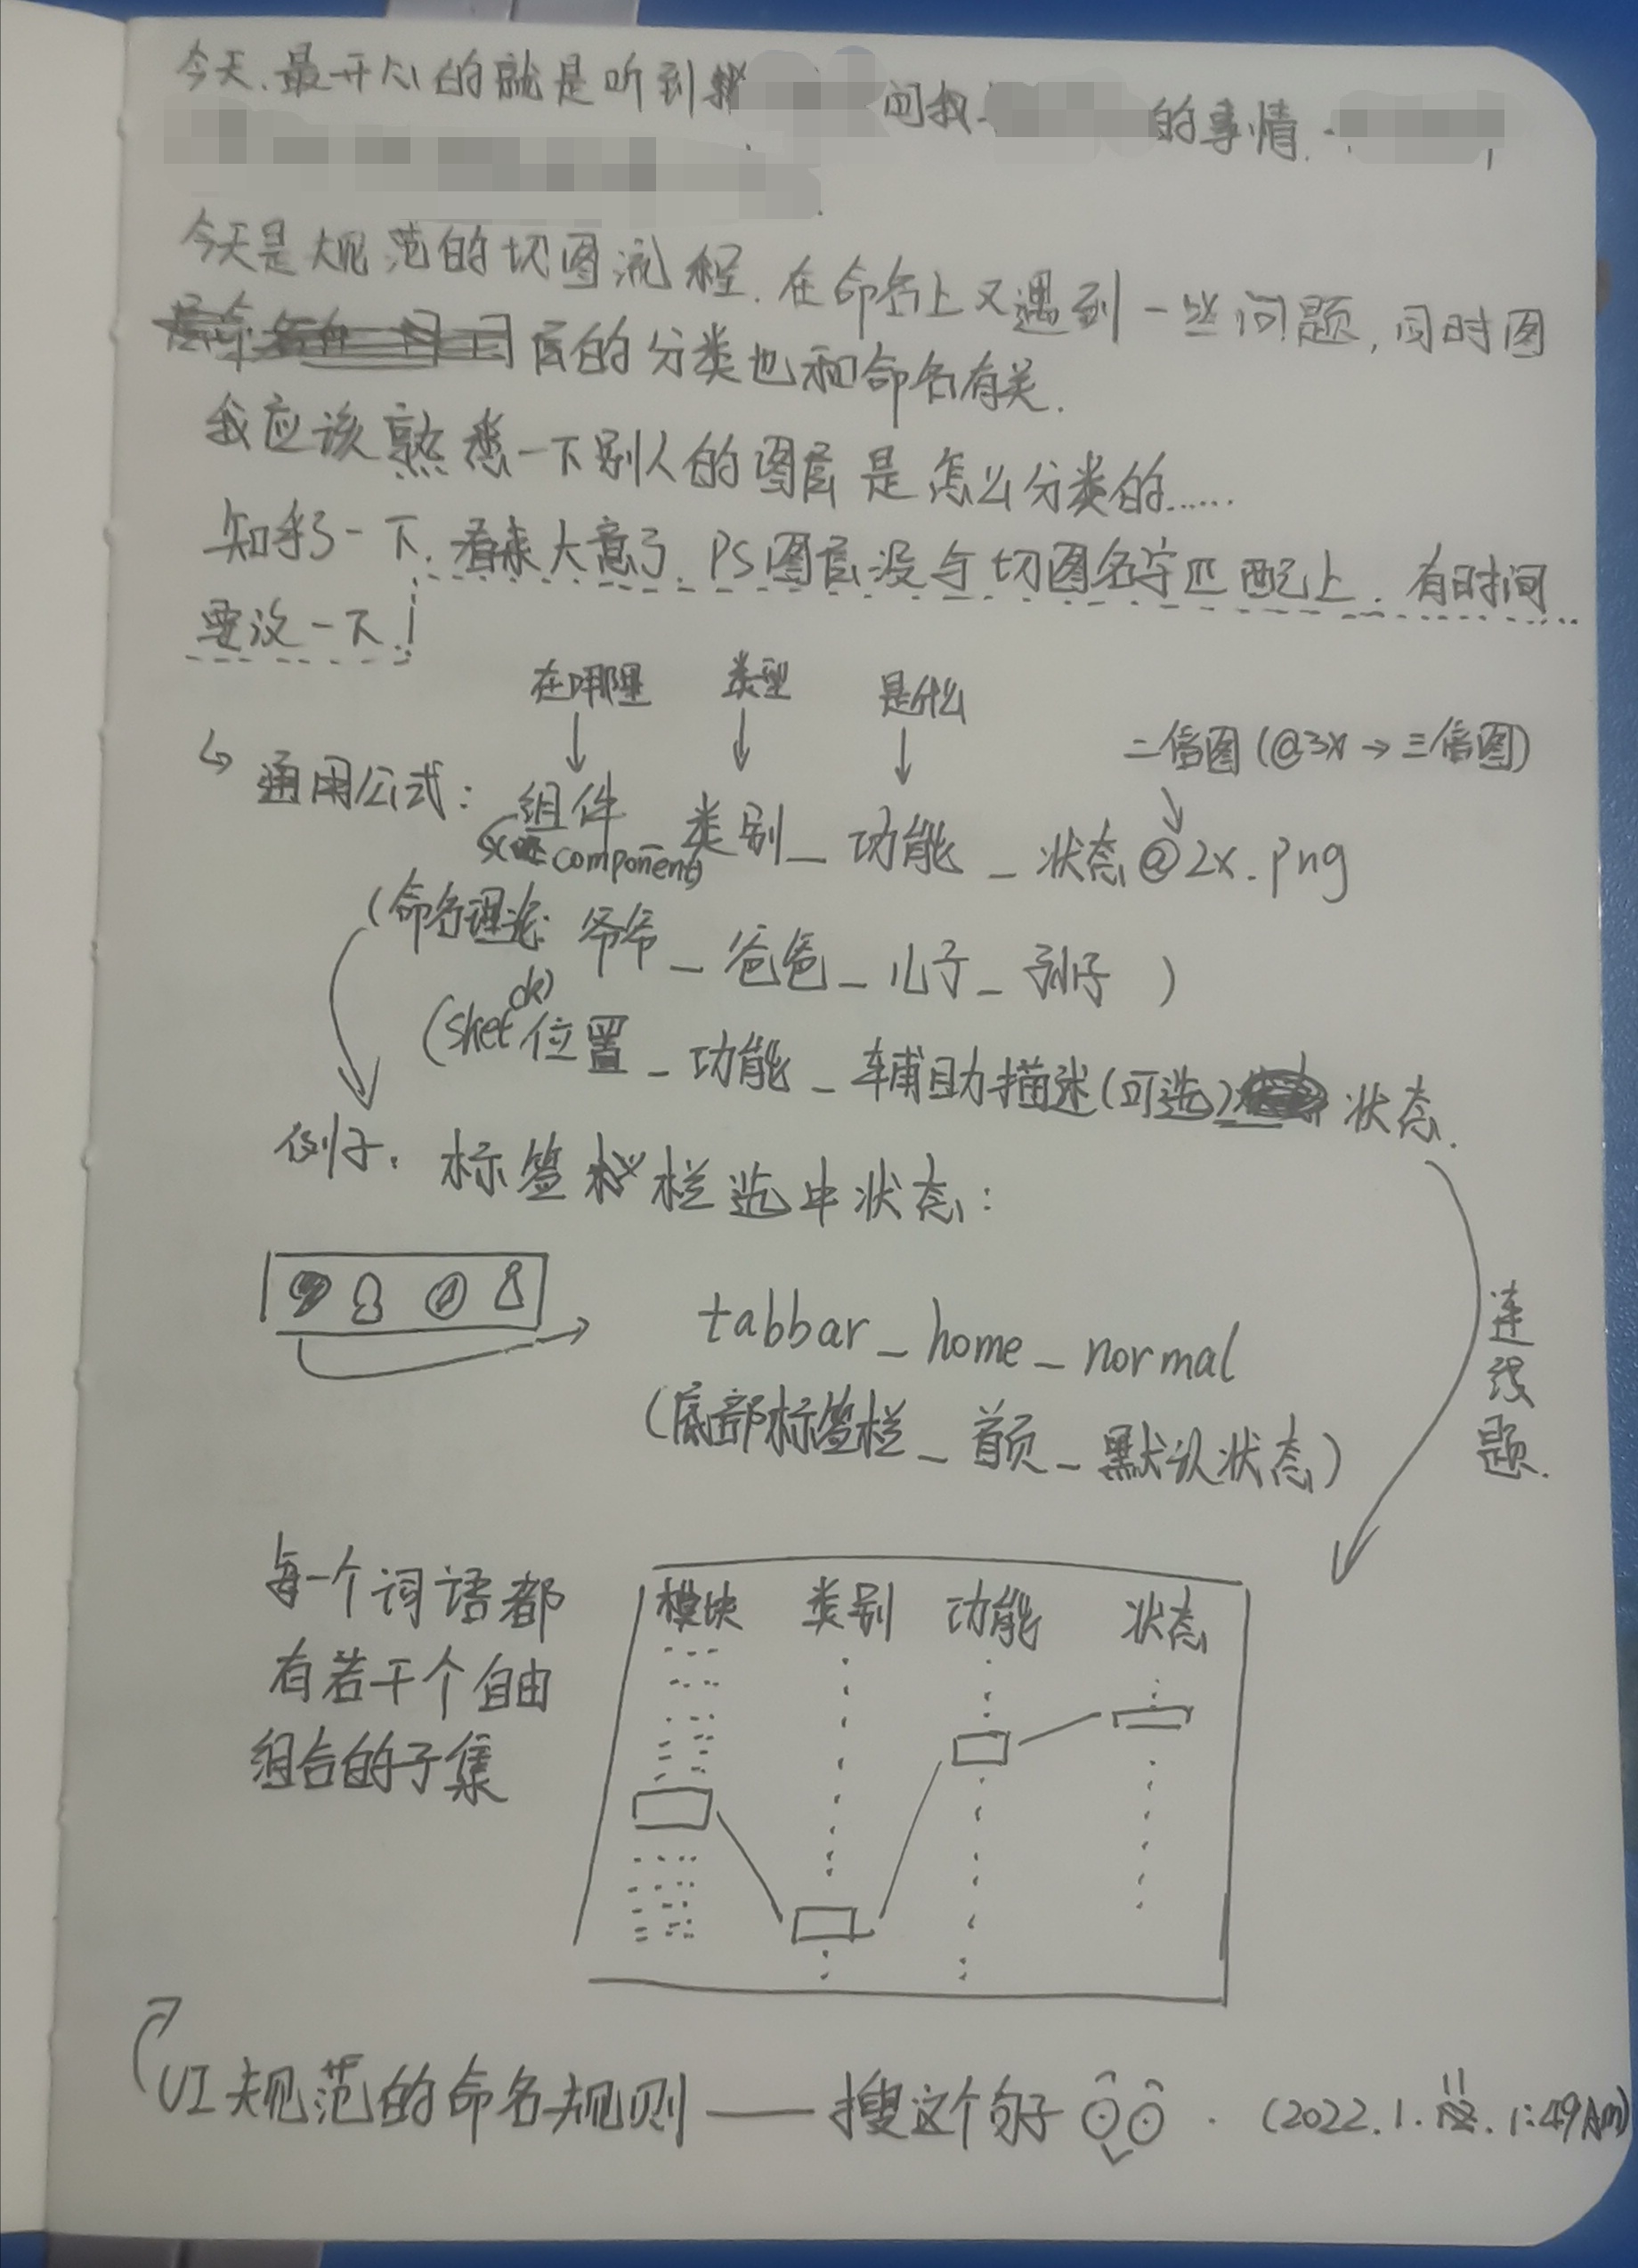 今天.最开心的就是听到我 问我 的事情.
今天是规范的切图流程.在命名上又遇到一些问题,同时图
层的分类也和命名有关.
我应该熟悉一下别人的图层是怎么分类的......
知乎了一下.看来大意了.PS图层没与切图名字匹配上.有时间
要改一下!
在哪里 类型 是什么
二倍图(@3x→三倍图)
通用公式: 组件_类别_功能_状态@2x.png
component)
(命名理论: 爷爷_爸爸_儿子_孙子)
(sketch)位置_功能_辅助描述(可选)_状态.
例子: 标签栏选中状态:
连线题.
tabbar_home_normal
(底部标签栏_首页_默认状态)
每一个词语都
有若干个自由
组合的子集
模块 类别 功能 状态
UI规范的命名规则——搜这个句子 . (2022.1.11.1:49AM)